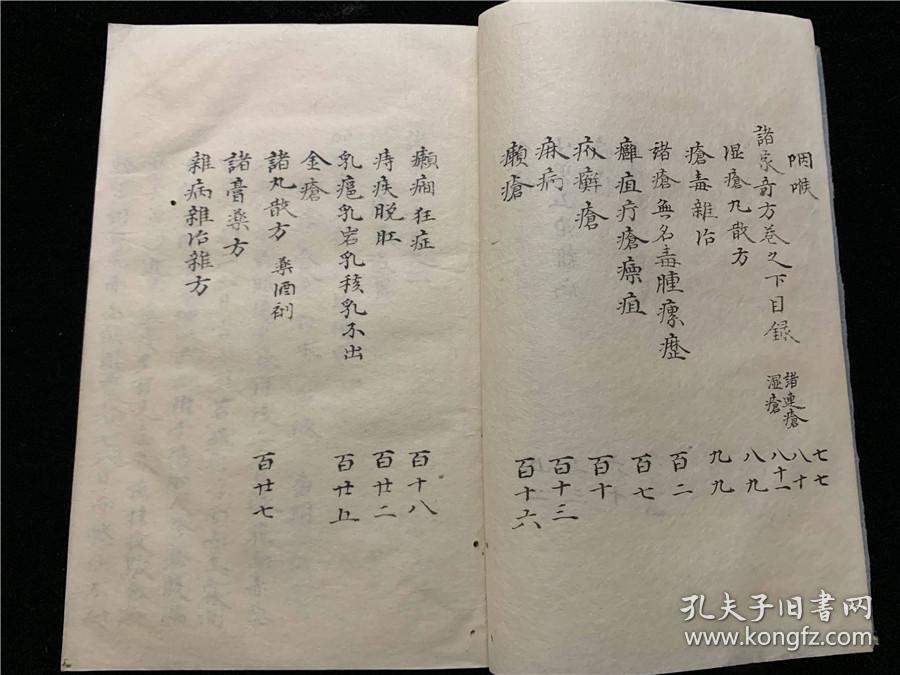 咽喉 七七
諸家奇方卷之下目録 諸連瘡 八十
湿瘡 八十一
湿瘡丸散方 八九
瘡毒雜治 九九
諸瘡無名毒腫瘰癧 百二
癰疽疔瘡瘭疽 百七
疥癬瘡 百十
麻病 百十三
癩瘡 百十六
癲癇狂症 百十八
痔疾脱肛 百廿二
乳癰乳岩乳核乳不出 百廿五
金瘡
諸丸散方 藥酒剤 百廿七
諸膏藥方
雜病雜治雜方
孔夫子旧书网
www.kongfz.com